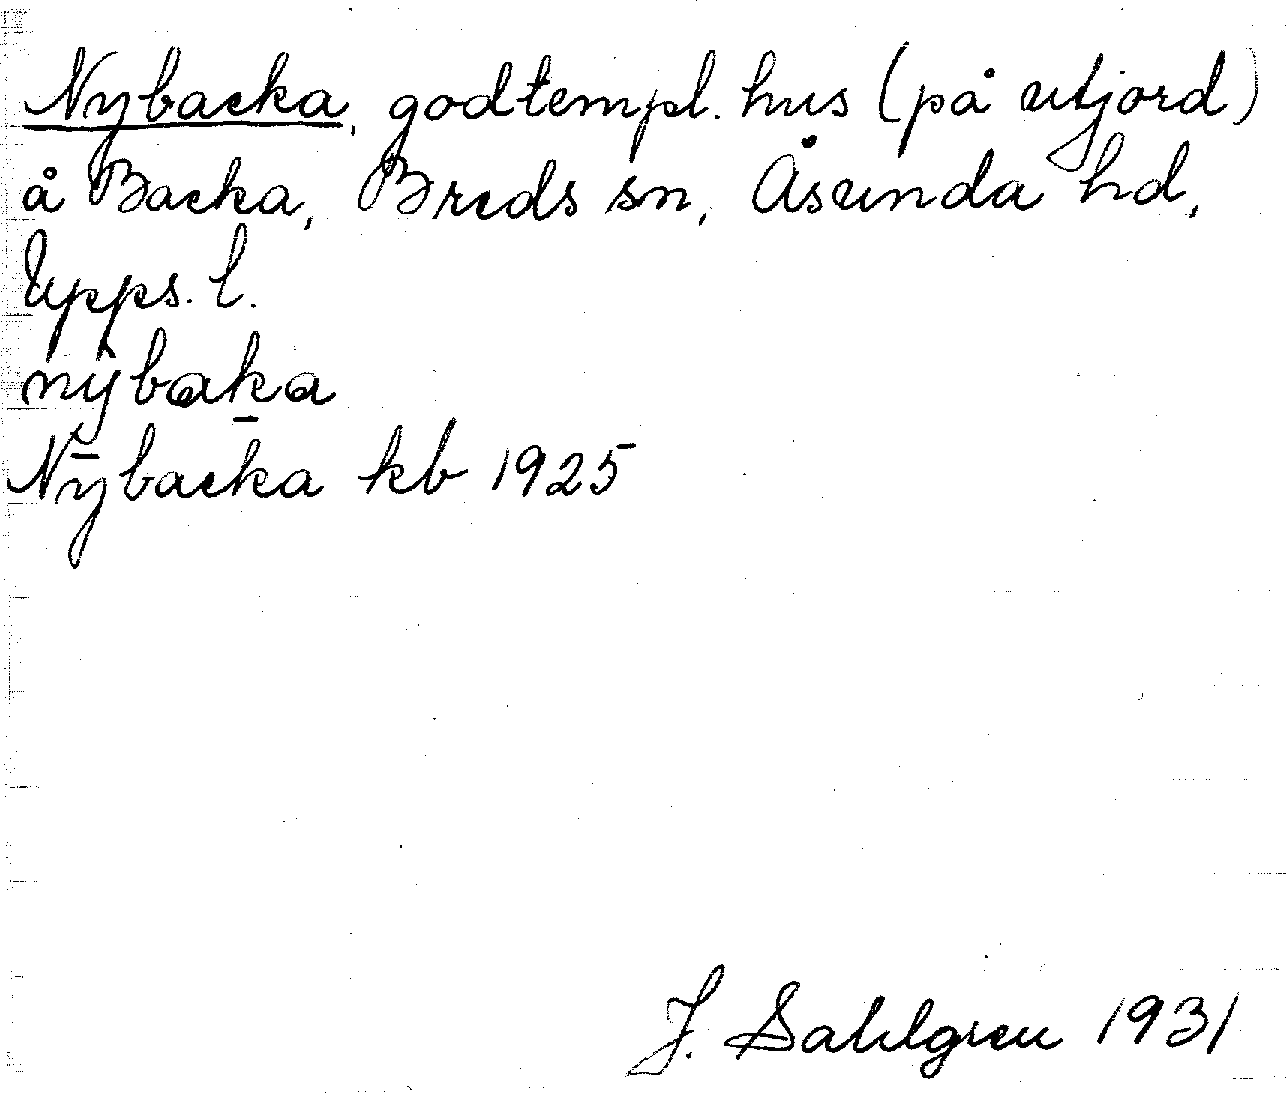 Nybacka, godtempl. hus (på utjord)
å Backa, Breds sn, Åsunda hd,
Upps. l.
nỳbak̠a
Nȳbacka kb 1925
J. Sahlgren 1931